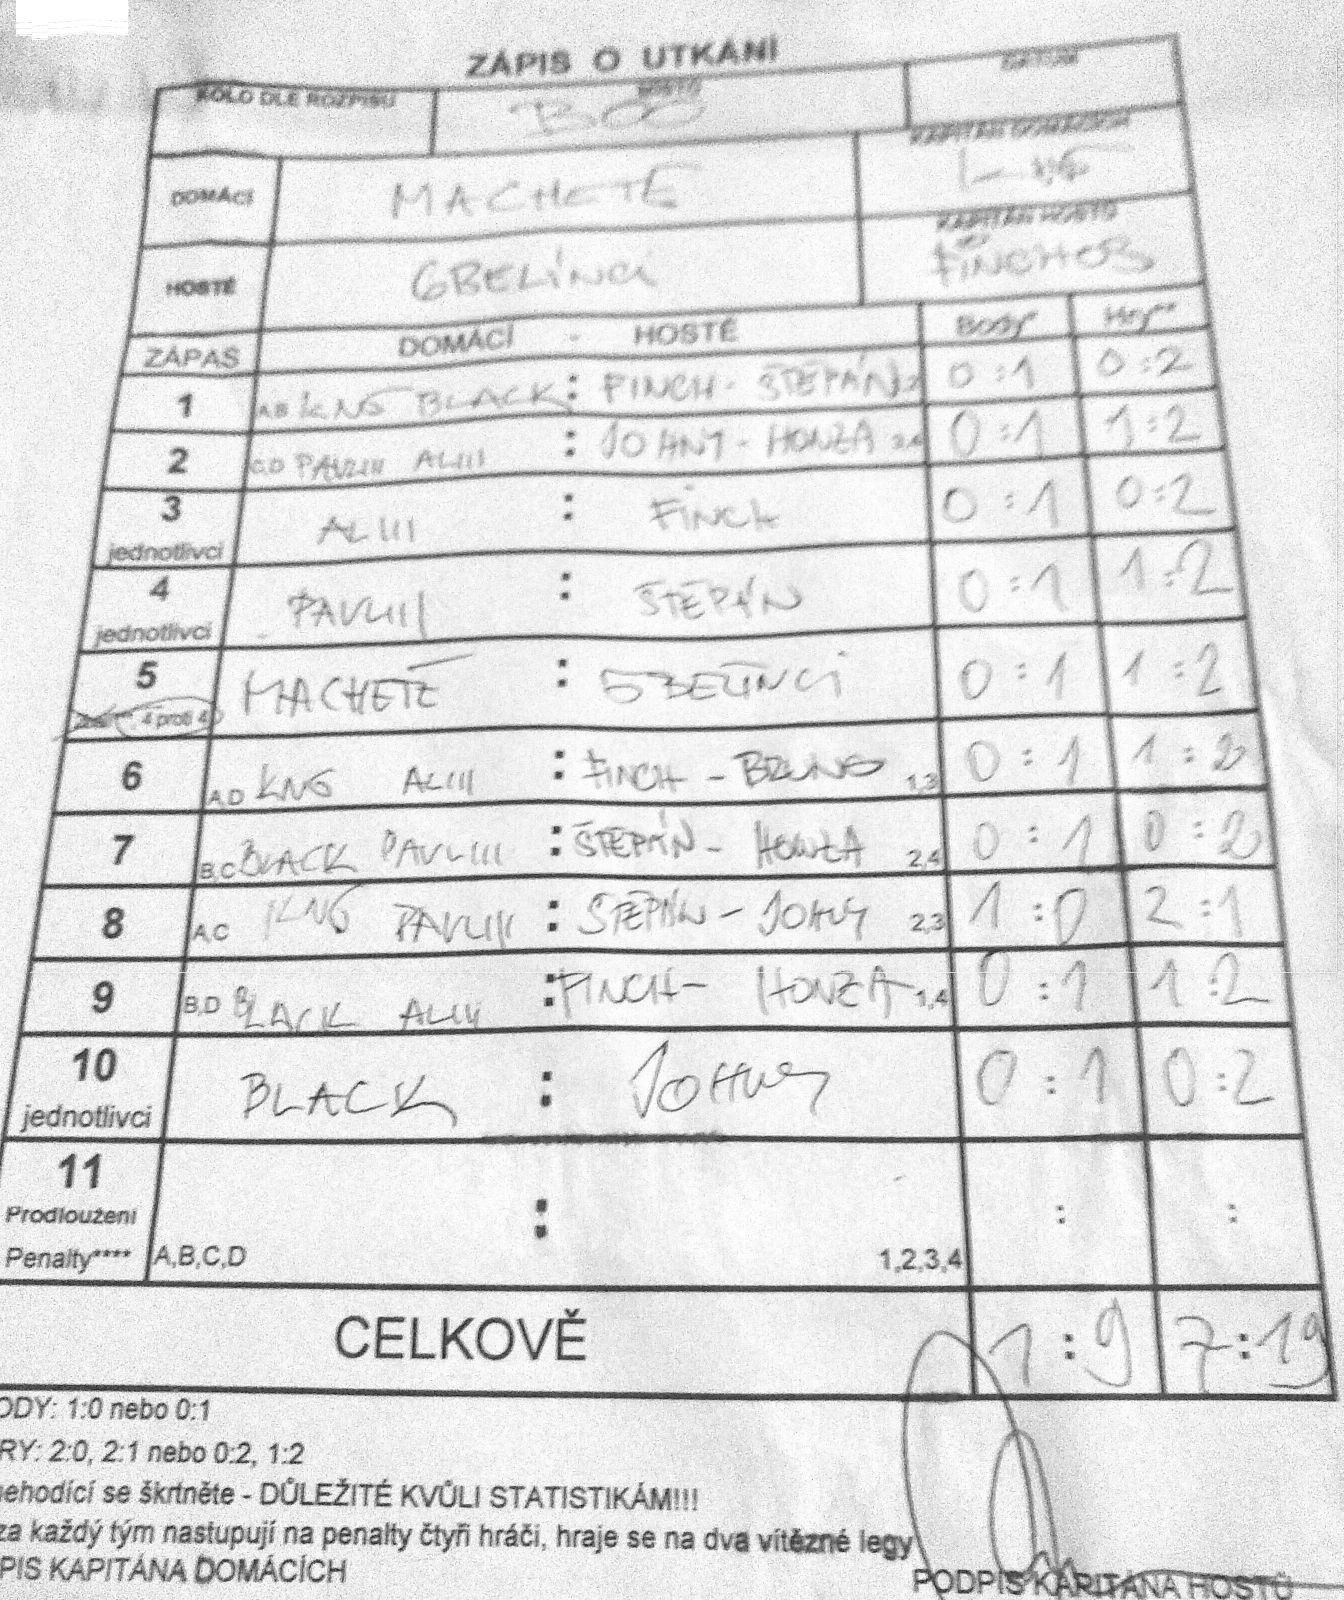 ZÁPIS O UTKÁNÍ
KOLO DLE ROZPISU MÍSTO DATUM
BOO
DOMÁCÍ MACHETE KAPITÁN DOMÁCÍCH
HOSTÉ GBELÍNCI KAPITÁN HOSTŮ
ZÁPAS DOMÁCÍ - HOSTÉ Body* Hry**
1 A,B KNG BLACK : FINCH - ŠTĚPÁN 0:1 0:2
2 C,D PAVLIII ALIII : JOHNY - HONZA 3,4 0:1 1:2
3 jednotlivci ALIII : FINCH 0:1 0:2
4 jednotlivci PAVLIII : ŠTĚPÁN 0:1 1:2
5 4 proti 4 MACHETE : GBELÍNCI 0:1 1:2
6 A,D KNG ALIII : FINCH - BRUNO 1,3 0:1 1:2
7 B,C BLACK PAVLIII : ŠTĚPÁN - HONZA 2,4 0:1 0:2
8 A,C KNG PAVLIII : ŠTĚPÁN - JOHNY 2,3 1:0 2:1
9 B,D BLACK ALIII : FINCH - HONZA 1,4 0:1 1:2
10 jednotlivci BLACK : JOHNY 0:1 0:2
11
Prodloužení : : :
Penalty**** A,B,C,D 1,2,3,4
CELKOVĚ 1:9 7:19
ODY: 1:0 nebo 0:1
RY: 2:0, 2:1 nebo 0:2, 1:2
nehodící se škrtněte - DŮLEŽITÉ KVŮLI STATISTIKÁM!!!
za každý tým nastupují na penalty čtyři hráči, hraje se na dva vítězné legy
PIS KAPITÁNA DOMÁCÍCH PODPIS KAPITÁNA HOSTŮ